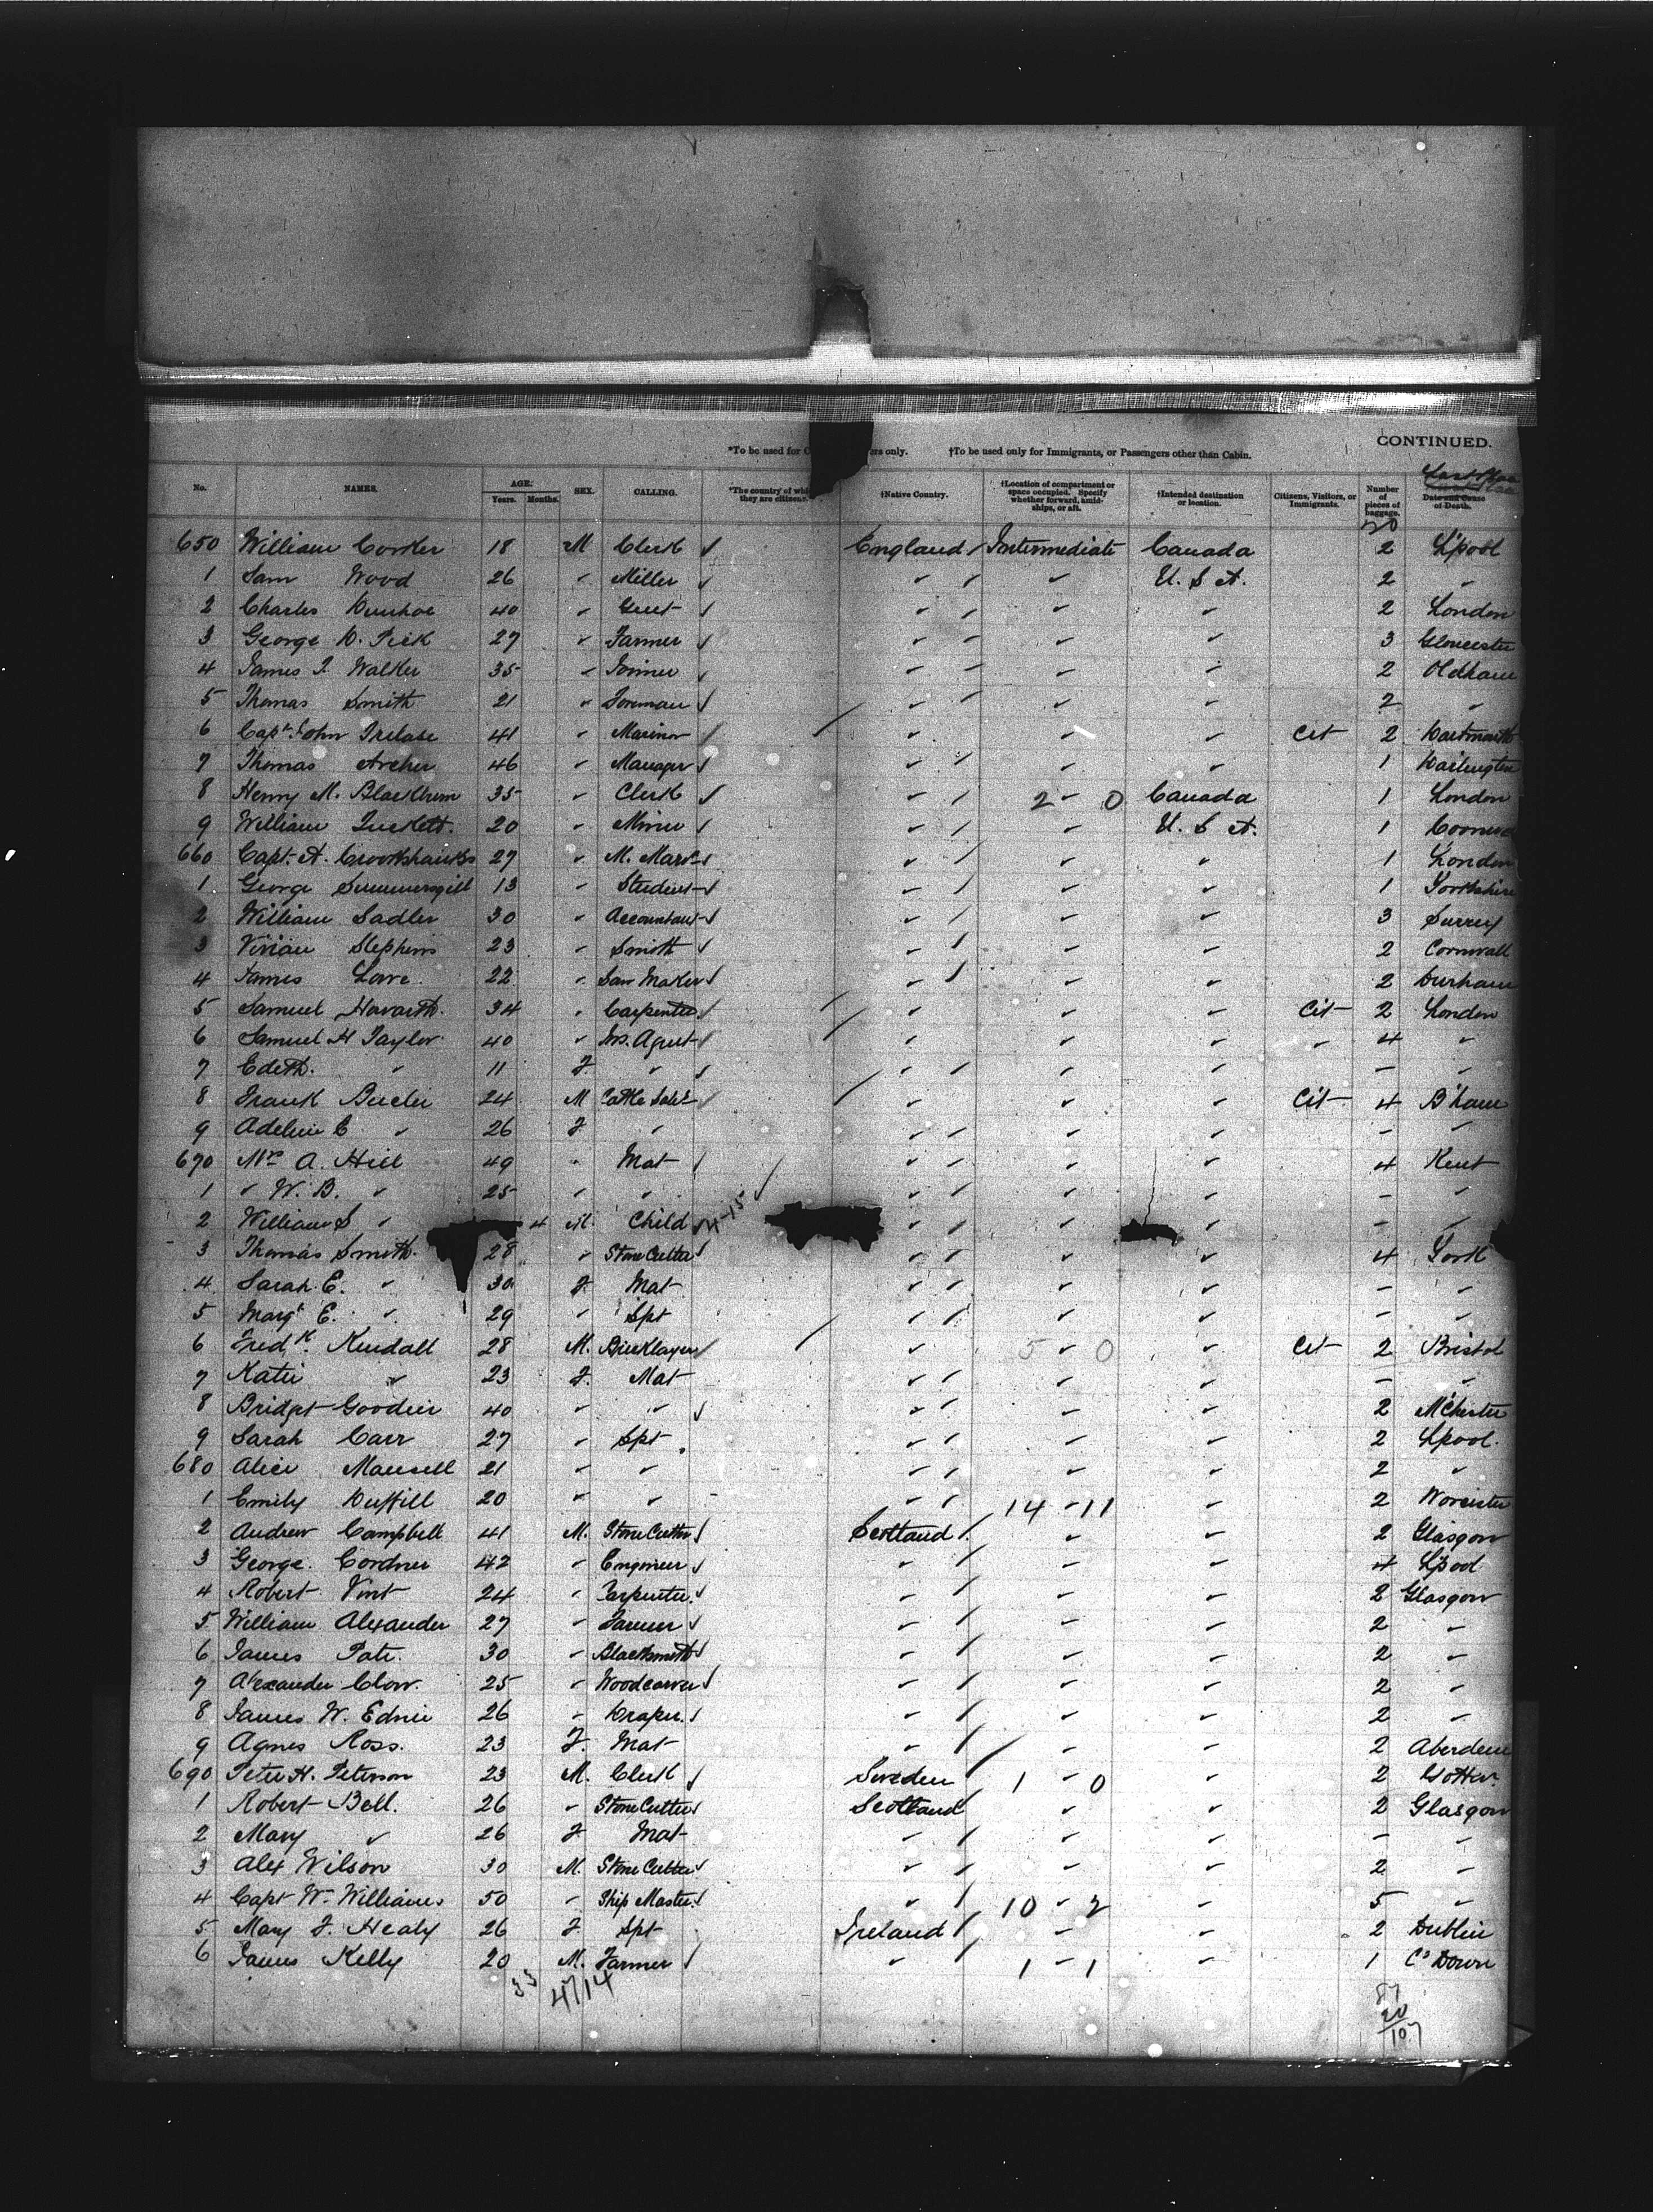 CONTINUED.
*To be used for C ers only. †To be used only for Immigrants, or Passengers other than Cabin.
No. NAMES. AGE. Years. Months. SEX. CALLING. *The country of whi they are citizens. †Native Country. †Location of compartment or space occupied. Specify whether forward, amidships, or aft. †Intended destination or location. Citizens, Visitors, or Immigrants. Number of pieces of baggage. Date and Cause of Death.
650 William 18 M Clerk ✓ England / Intermediate Canada 2 L'pool
1 Sam Wood 26 " Miller ✓ " / " U. S A. 2 "
2 Charles 40 " ✓ " / " " 2 London
3 George D. 27 " Farmer ✓ " / " " 3 Gloucester
4 James J. Walker 35 " Joiner ✓ " / " " 2 Oldham
5 Thomas Smith 21 " Foreman ✓ " / " " 2 "
6 Capt. John 41 " Mariner / " " " Cit 2 Dartmouth
7 Thomas Archer 46 " Manager ✓ " / " " 1 Darlington
8 Henry M. 35 " Clerk ✓ " / 2 - 0 Canada 1 London
9 William Tuckett. 20 " Miner ✓ " / " U. S A. 1
660 Capt. A. Crookshanks 27 " ✓ " / " " 1 London
1 George Summersgill 13 " Student ✓ " / " " 1 Yorkshire
2 William Sadler 30 " Accountant ✓ " / " " 3 Surrey
3 Vivian Stephens 23 " Smith ✓ " / " " 2 Cornwall
4 James 22 " Saw Maker ✓ " / " " 2 Durham
5 Samuel 34 " Carpenter / " " " Cit 2 London
6 Samuel H Taylor 40 " Ins. Agent / " " " " 4 "
7 Edith. " 11 F. " ✓ " / " " - "
8 Frank 24 M / " " " Cit 4 B'ham
9 " 26 F " " / " " - "
670 Mrs A. Hill 49 " Mat / " / " " 4 Kent
1 " W. B. " 25 " " " / " " - "
2 William S " 4 M. Child ✓ 14-15 " / " " - "
3 Thomas Smith. 28 " Stone Cutter ✓ " / " " 4 York
4 Sarah E. " 30 F. Mat " / " " - "
5 Margt E. " 29 " Spt " / " " - "
6 Fredk. Kendall 28 M. Bricklayer / " 5 - 0 " Cit 2 Bristol
7 Katie " 23 F. Mat " / " " - "
8 Bridget 40 " " ✓ " / " " 2 M'Chester
9 Sarah Carr 27 " Spt " / " " 2 L'pool.
680 Alice Mansell 21 " " " / " " 2 "
1 Emily Duffill 20 " " " / 14 - 11 " 2 Worcester
2 Andrew Campbell 41 M. Stone Cutter ✓ Scotland / " " 2 Glasgow
3 George Cordner 42 " Engineer ✓ " / " " 4 L'pool
4 Robert Vint 24 " Carpenter ✓ " / " " 2 Glasgow
5 William Alexander 27 " Farmer ✓ " / " " 2 "
6 James Pate. 30 " Blacksmith ✓ " / " " 2 "
7 Alexander Clow. 25 " Woodcarver ✓ " / " " 2 "
8 James W. Ednie 26 " Draper. ✓ " / " " 2 "
9 Agnes Ross. 23 F. Mat " / " " 2 Aberdeen
690 Peter H. Peterson 23 M. Clerk ✓ Sweden 1 - 0 " 2
1 Robert Bell. 26 " Stone Cutter ✓ Scotland / " " 2 Glasgow
2 Mary " 26 F Mat " / " " - "
3 Alex Wilson 30 M. Stone Cutter ✓ " / " " 2 "
4 Capt W. Williams 50 " Ship Master ✓ " / 10 - 2 " 5 "
5 Mary J. Healy 26 F Spt Ireland / " " 2 Dublin
6 James Kelly 20 M. Farmer ✓ " / 1 - 1 " 1 Co Down
33 47/14 87
20
107